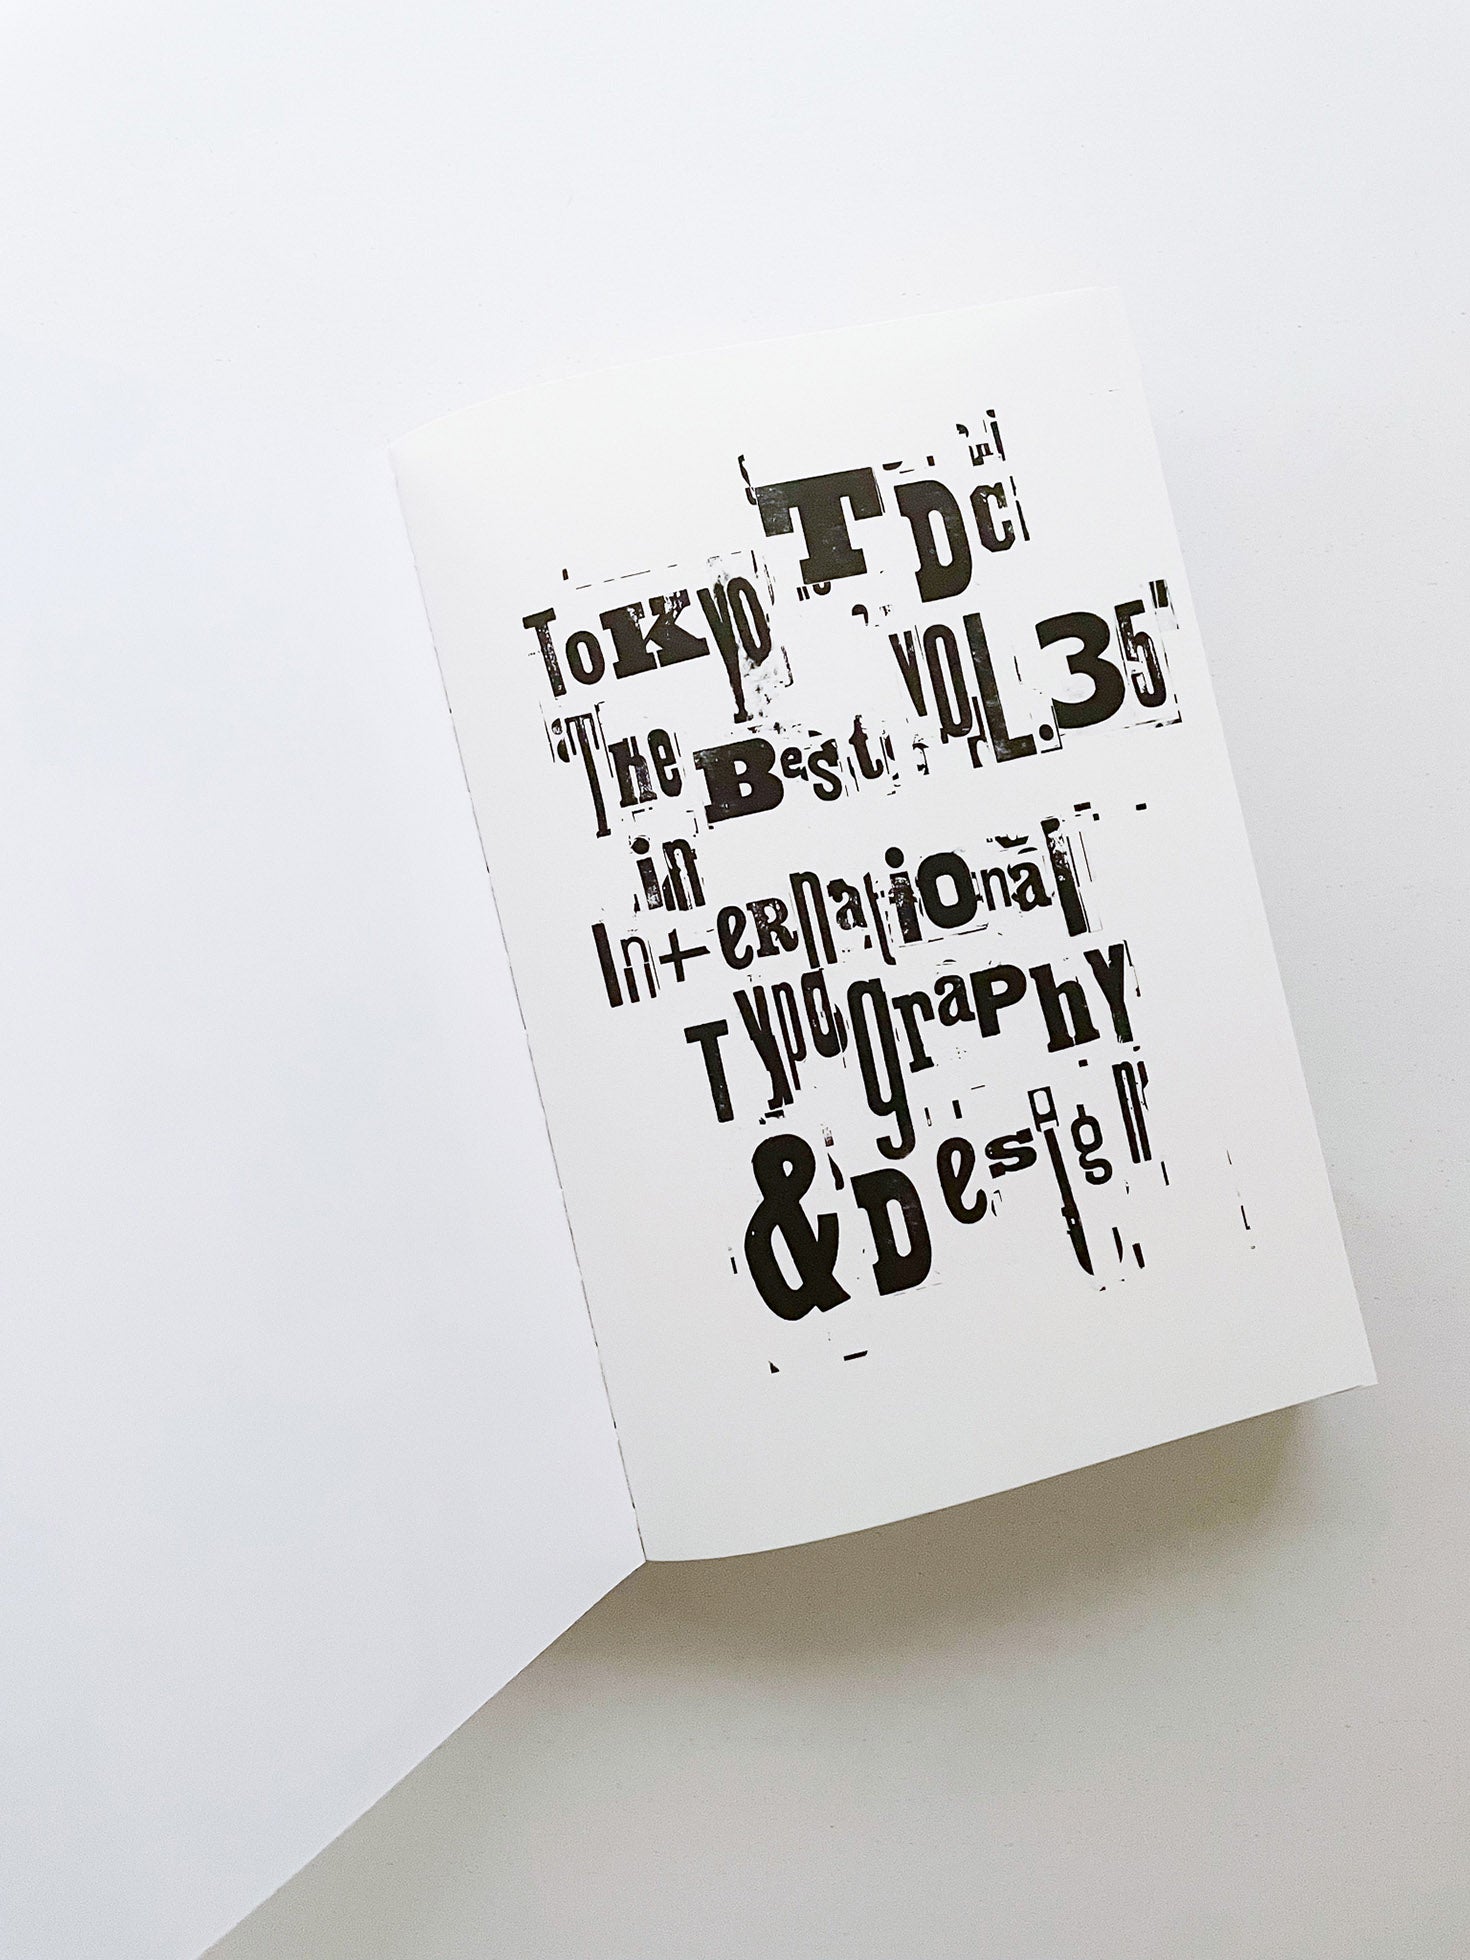 Tokyo TDC
VOL.35
The Best
in
International
Typography
& Design